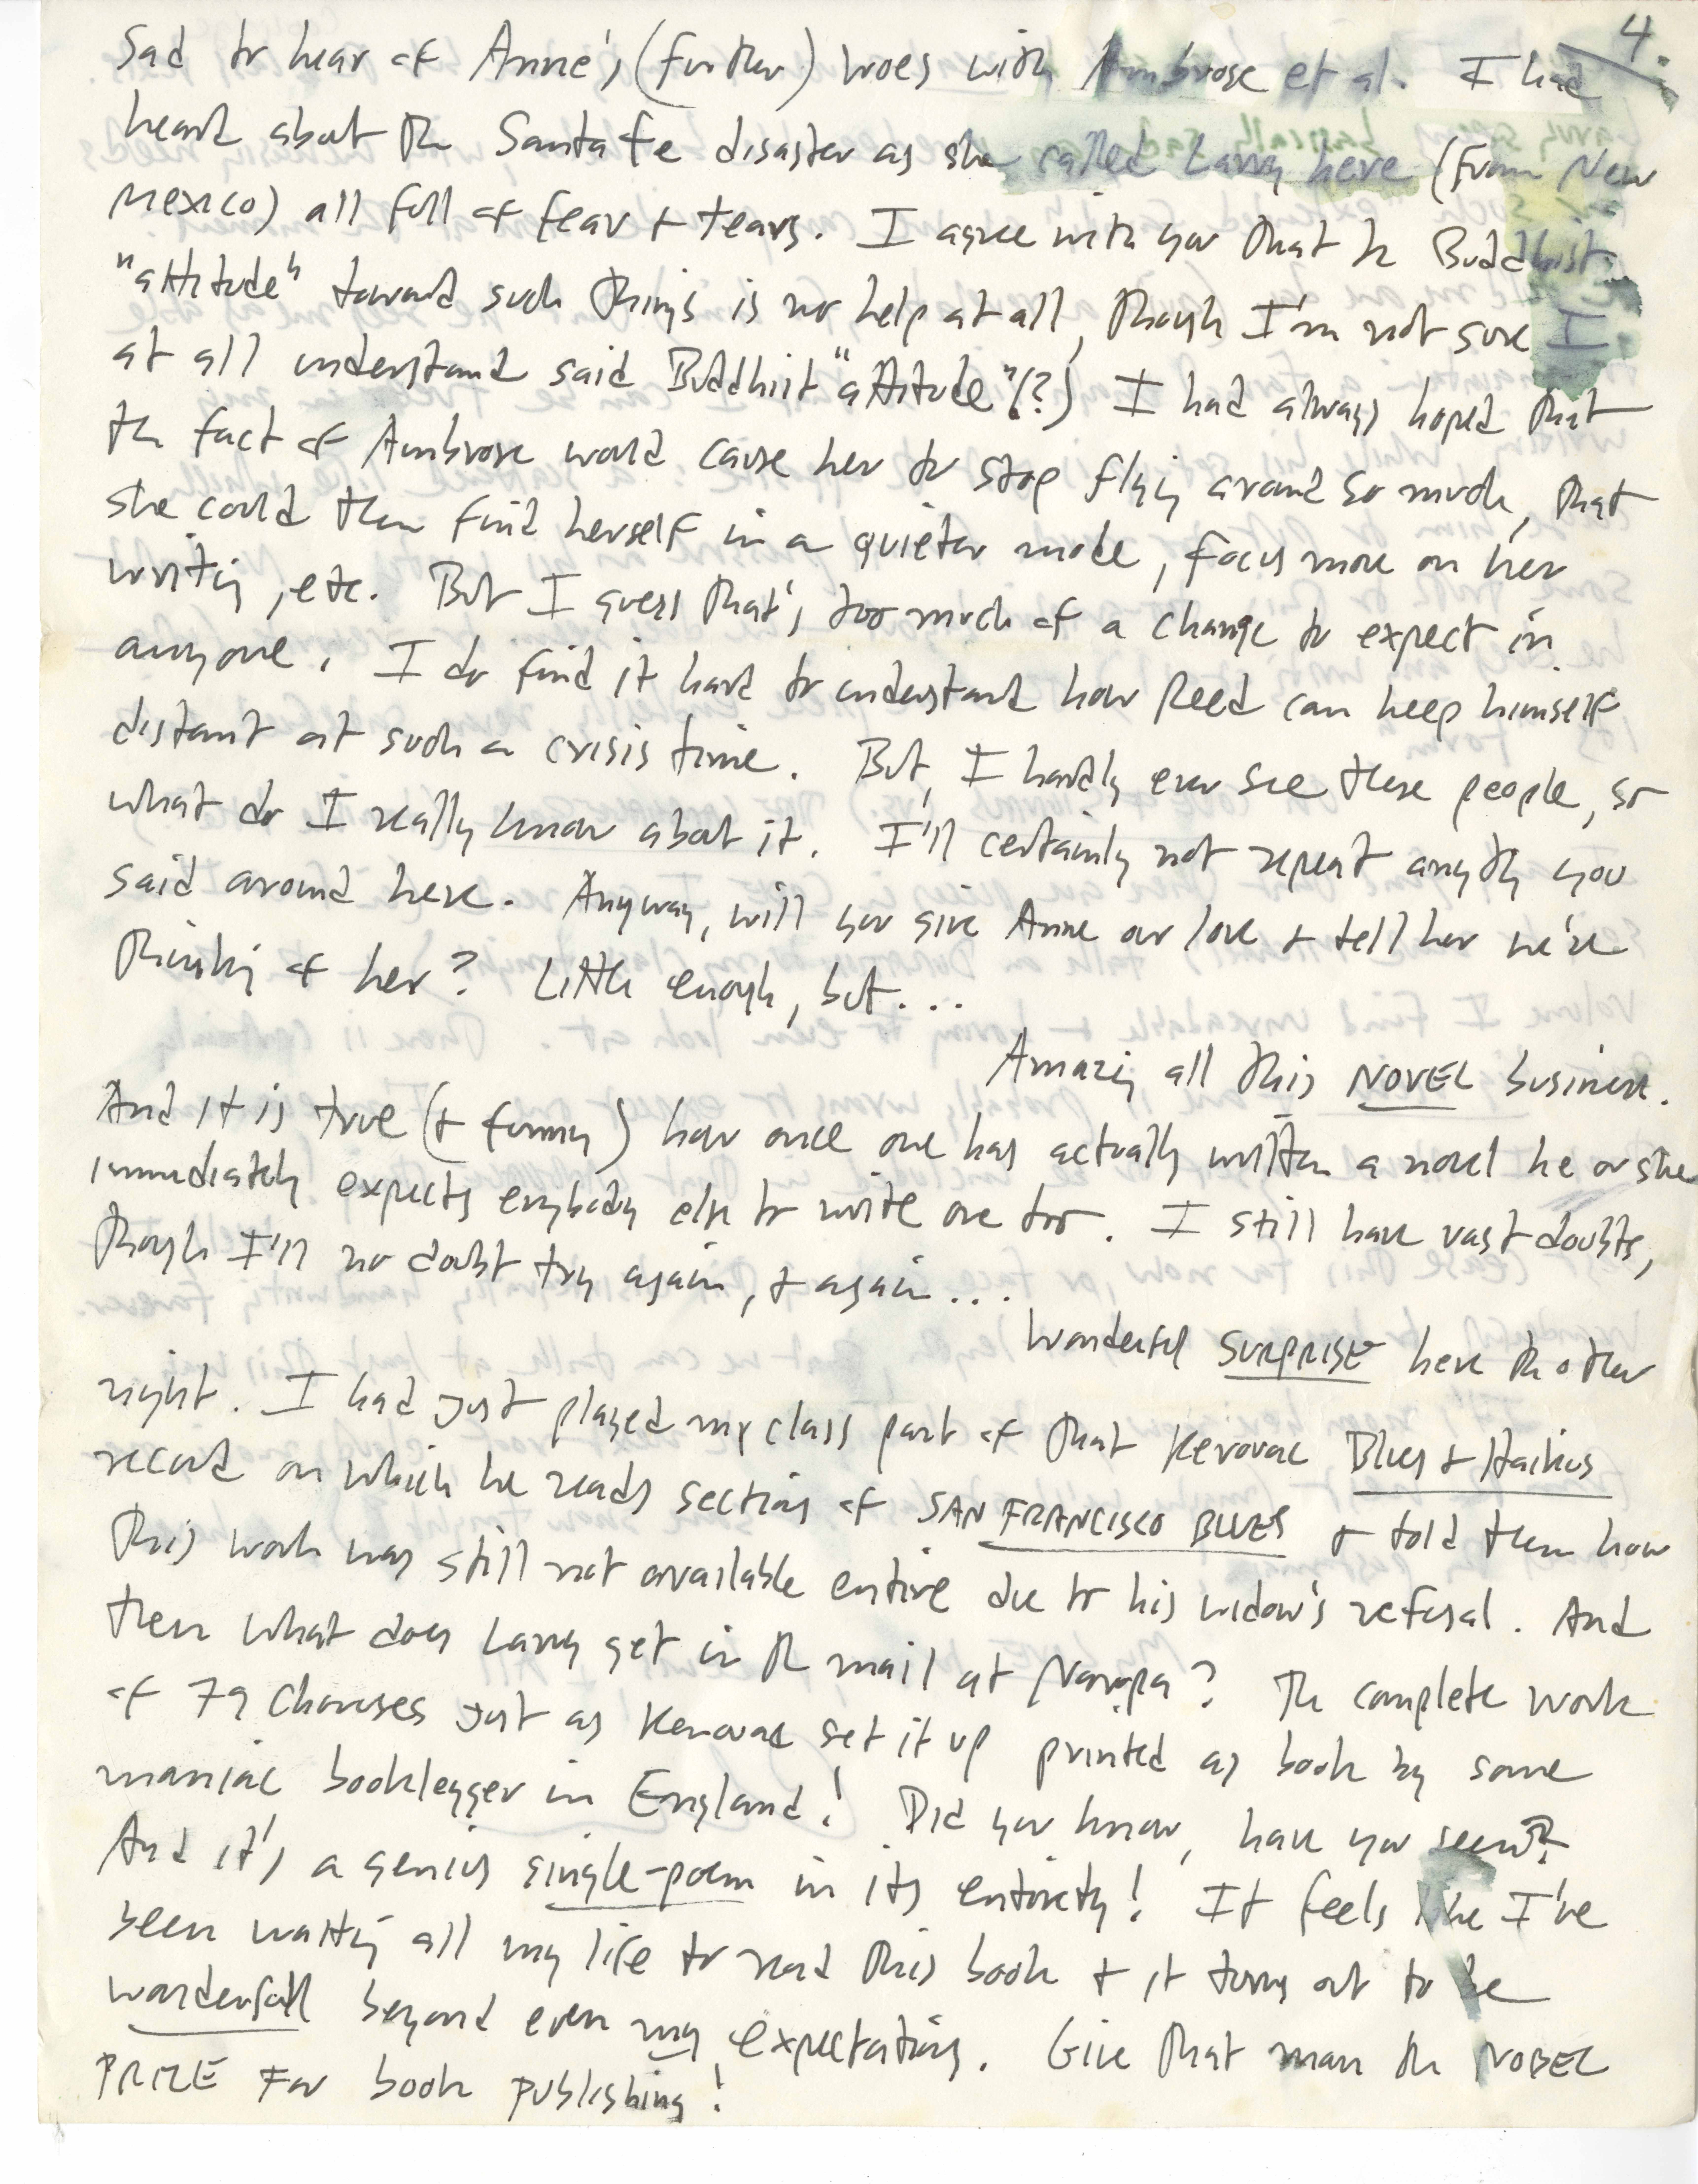 4.
Sad to hear of Anne's (further) woes with Ambrose et al. I had
heard about the Santa Fe disaster as she called Larry here (from New
Mexico) all full of fear & tears. I agree with you that the Buddhist
"attitude" toward such things is no help at all, though I'm not sure I
at all understand said Buddhist "attitude"(?) I had always hoped that
the fact of Ambrose would cause her to stop flying around so much, that
she could then find herself in a quieter mode, focus more on her
writing, etc. But I guess that's too much of a change to expect in
anyone. I do find it hard to understand how Reed can keep himself
distant at such a crisis time. But, I hardly ever see these people, so
what do I really know about it. I'll certainly not repeat anything you
said around here. Anyway, will you give Anne our love & tell her we're
thinking of her? Little enough, but...
Amazing all this NOVEL business.
And it is true (& funny) how once one has actually written a novel he or she
immediately expects everybody else to write one too. I still have vast doubts,
though I'll no doubt try again, & again...
Wonderful SURPRISE here the other
night. I had just played my class part of that Kerouac Blues & Haikus
record on which he reads sections of SAN FRANCISCO BLUES & told them how
this work was still not available entire due to his widow's refusal. And
then what does Larry get in the mail at Naropa? The complete work
of 79 Choruses just as Kerouac set it up printed as book by some
maniac booklegger in England! Did you know, have you seen?
And it's a genius single-poem in its entirety! It feels like I've
been waiting all my life to read this book & it turns out to be
wonderfull beyond even my expectations. Give that man the NOBEL
PRIZE for book publishing!